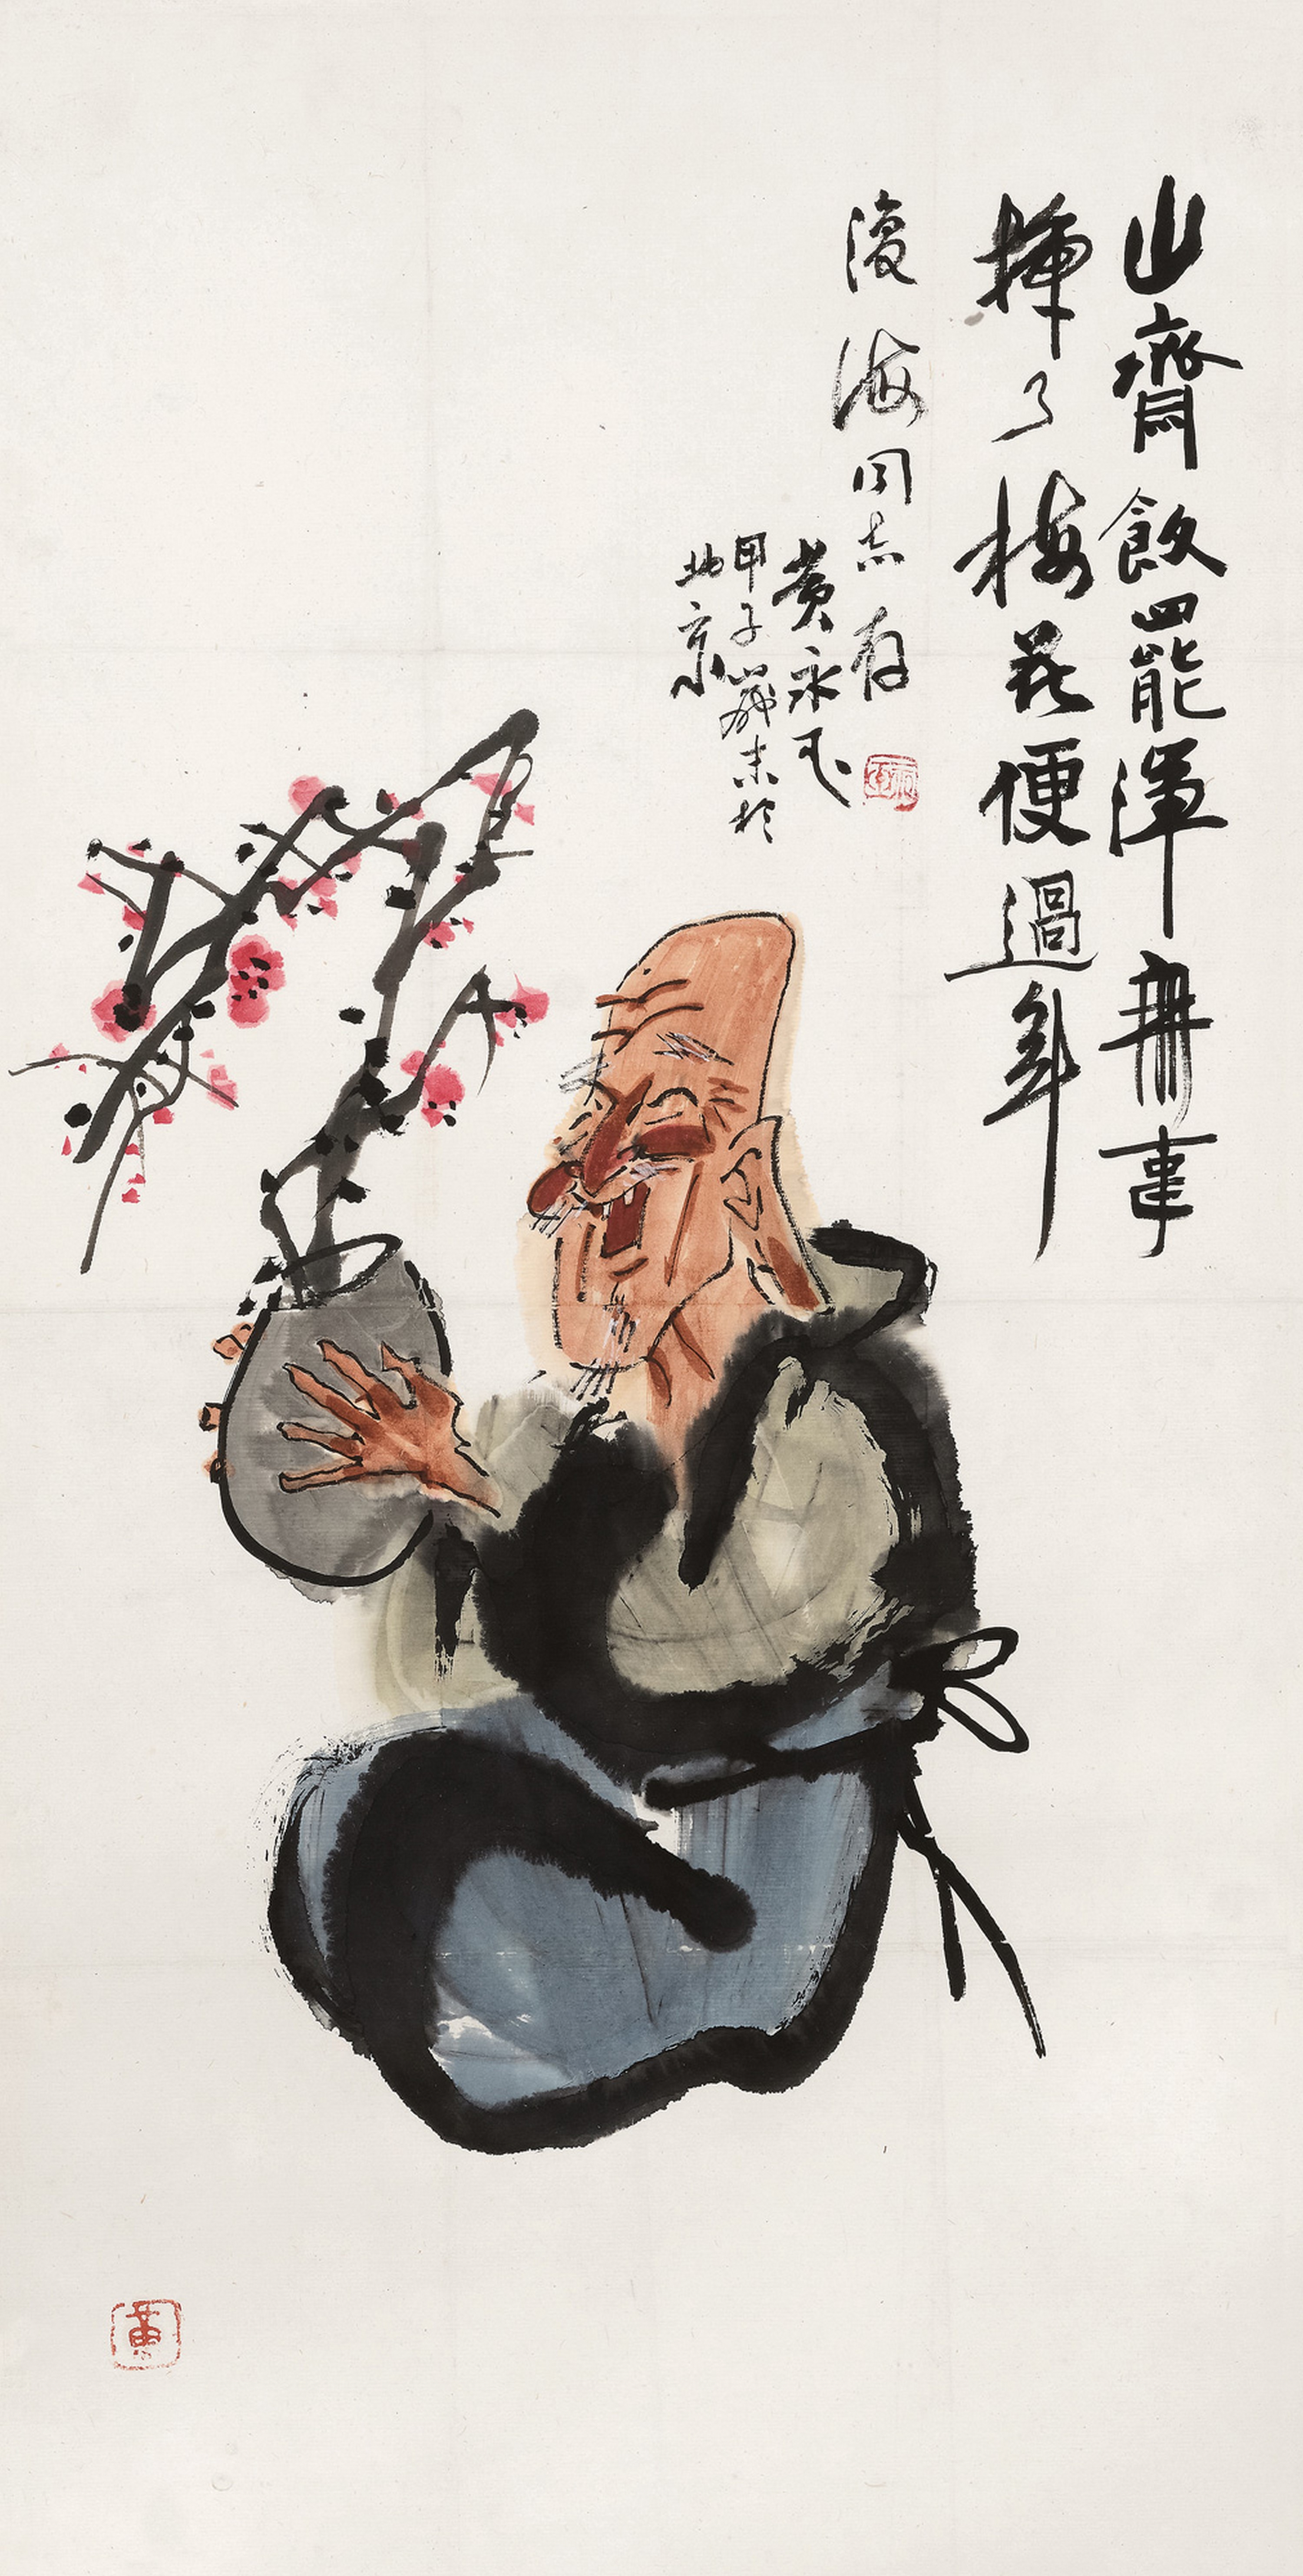 山齋飲罷渾無事
挿了梅花便過年
復海同志存
黃永玉
甲子歲末於
北京
黃